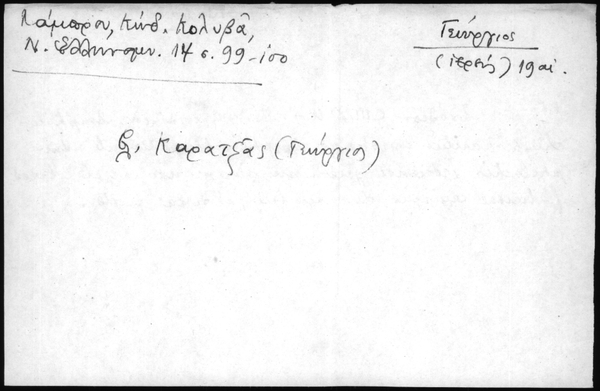 Λάμπρου, Κώδ. Κολυβᾶ,
Ν. Ἑλληνομν. 14 σ. 99-100
Γεώργιος
(ἱερεύς) 19 αἰ.
βλ. Καρατζᾶς (Γεώργιος)